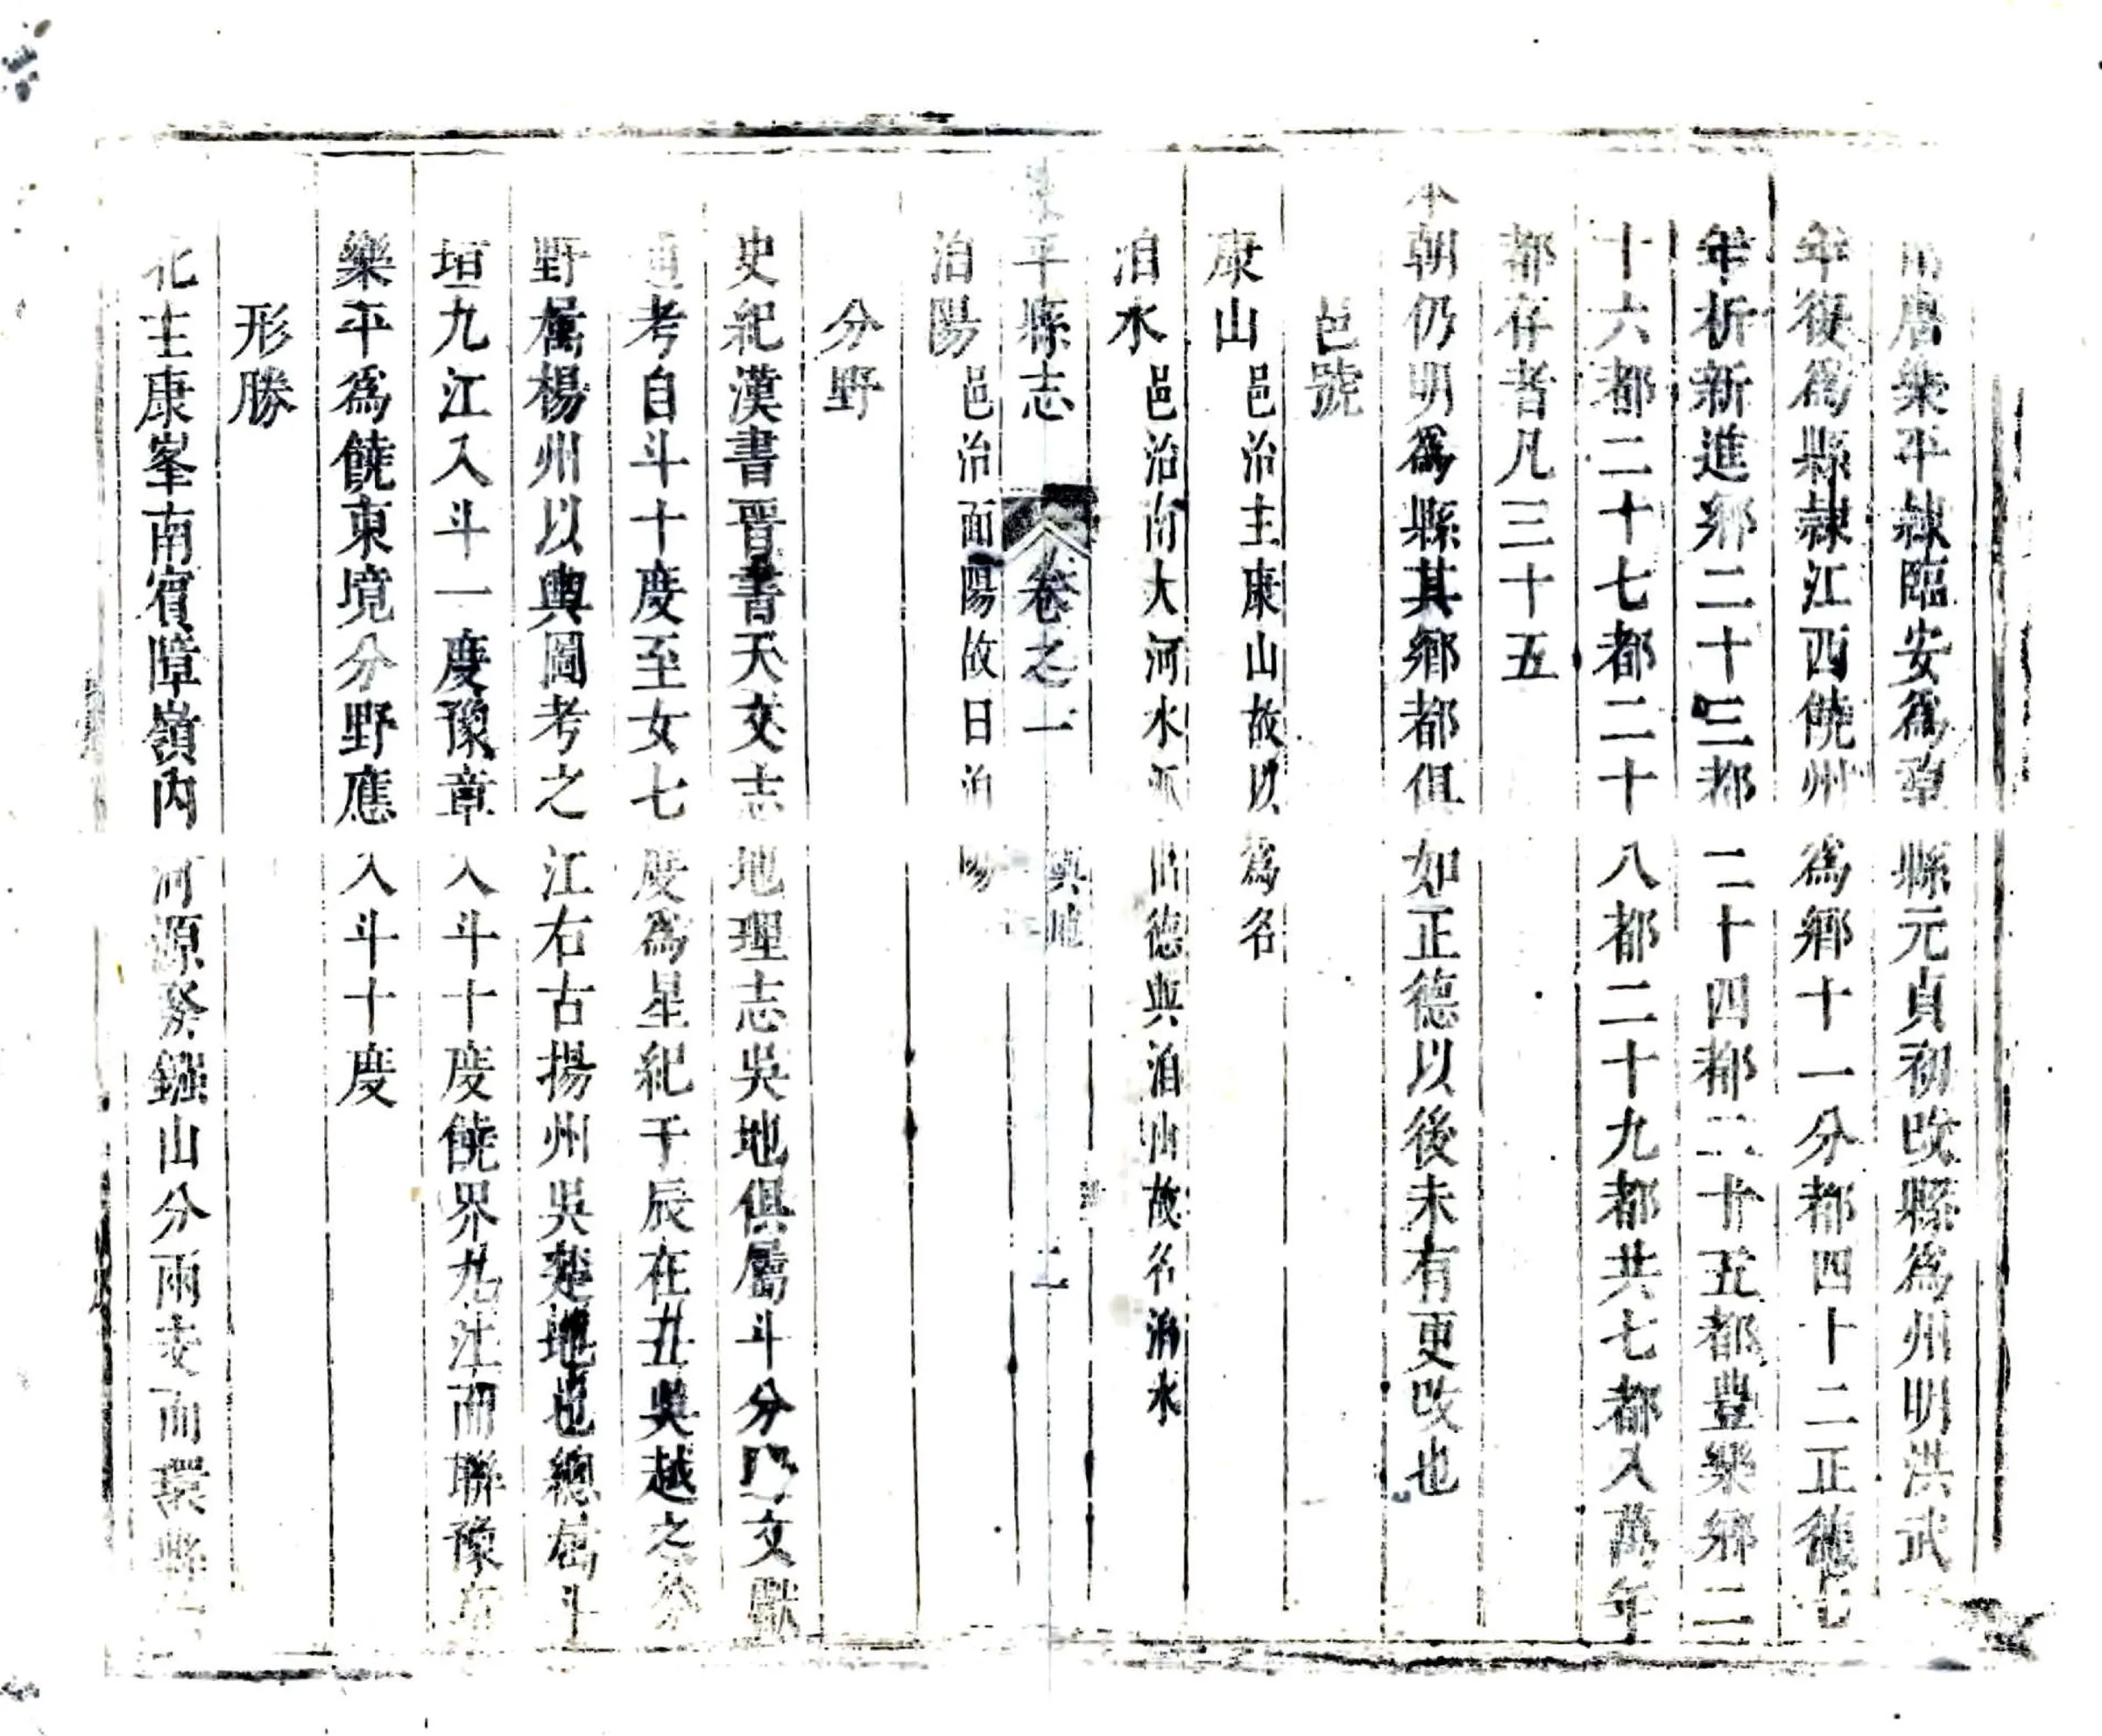 唐樂平隷臨安爲章縣元貞初改縣爲州明洪武
年復爲縣隷江西饒州爲鄉十一分都四十二正德七
年析新進鄉二十三都二十四都二十五都豊樂鄉二
十六都二十七都二十八都二十九都共七都入萬年
都存者凡三十五
本朝仍明爲縣其鄉都俱如正德以後未有更改也
邑號
康山邑治主康山故以爲名
洎水邑治南大河水源出德興洎山故名洎水
平縣志 卷之一 輿地 二
洎陽邑治面陽故曰洎陽
分野
史紀漢書晋書天文志地理志吳地俱屬斗分文獻
通考自斗十度至女七度爲星紀于辰在丑吳越之分
野屬楊州以輿圖考之江右古揚州吳楚地也總屬斗
垣九江入斗一度豫章入斗十度饒界九江而聯豫章
樂平爲饒東境分野應入斗十度
形勝
北主康峯南賓障嶺內河源發鏹山分兩支而環縣